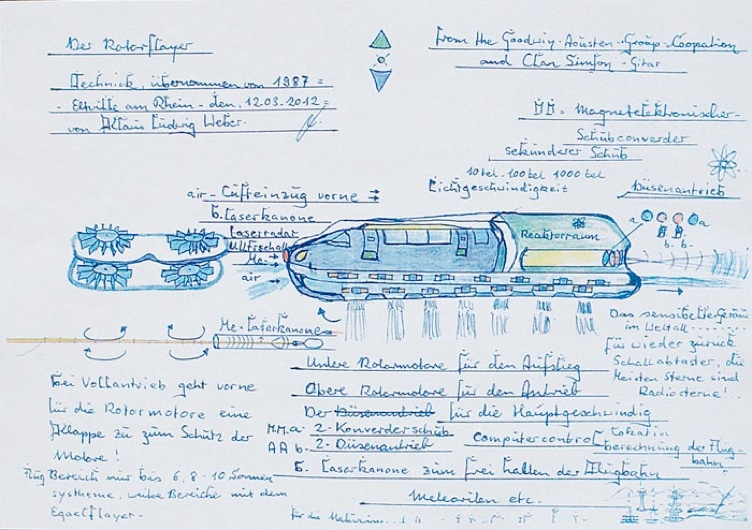 Der Rotorflayer
Technick, übernommen von 1987 =
- Eltville am Rhein - den. 12.03-2012 =
- von Klaus Ludwig Weber.
From the Goodwin - Aousten - Group - Coopation
and Clan Simfon - Gitar
M̈M̈ = Magnetelektronischer -
Schubconverder
sekünderer Schub
10 tel - 100 tel 1000 tel
Lichtgeschwindigkeit
Düsenantrieb
air - Lufteinzug vorne
6. Laserkanone
Laserradar
Me.
air
Reaktorraum
a a
b. b.
Me - Laserkanone
Das sensible
im Weltall ......
für wieder zurück
Schallabtaster, die
Meisten Sterne sind
Radiosterne!
Untere Rotormotore für den Aufstieg
Obere Rotormotore für den Antrieb
Der Düsenantrieb für die Hauptgeschwindig
M.M. a: 2 - Konverderschub
AA b. 2 - Düsenantrieb
Computercontrol
berechnung der Flug -
bahn
6. Laserkanone zum frei halten der Flugbahn
Meteoriten etc.
Bei Vollantrieb geht vorne
für die Rotor motore eine
Klappe zu zum Schutz der
Motore!
Flug Bereich nur bis 6. 8 - 10 Sonnen
systheme, weitere Bereiche mit dem
für die